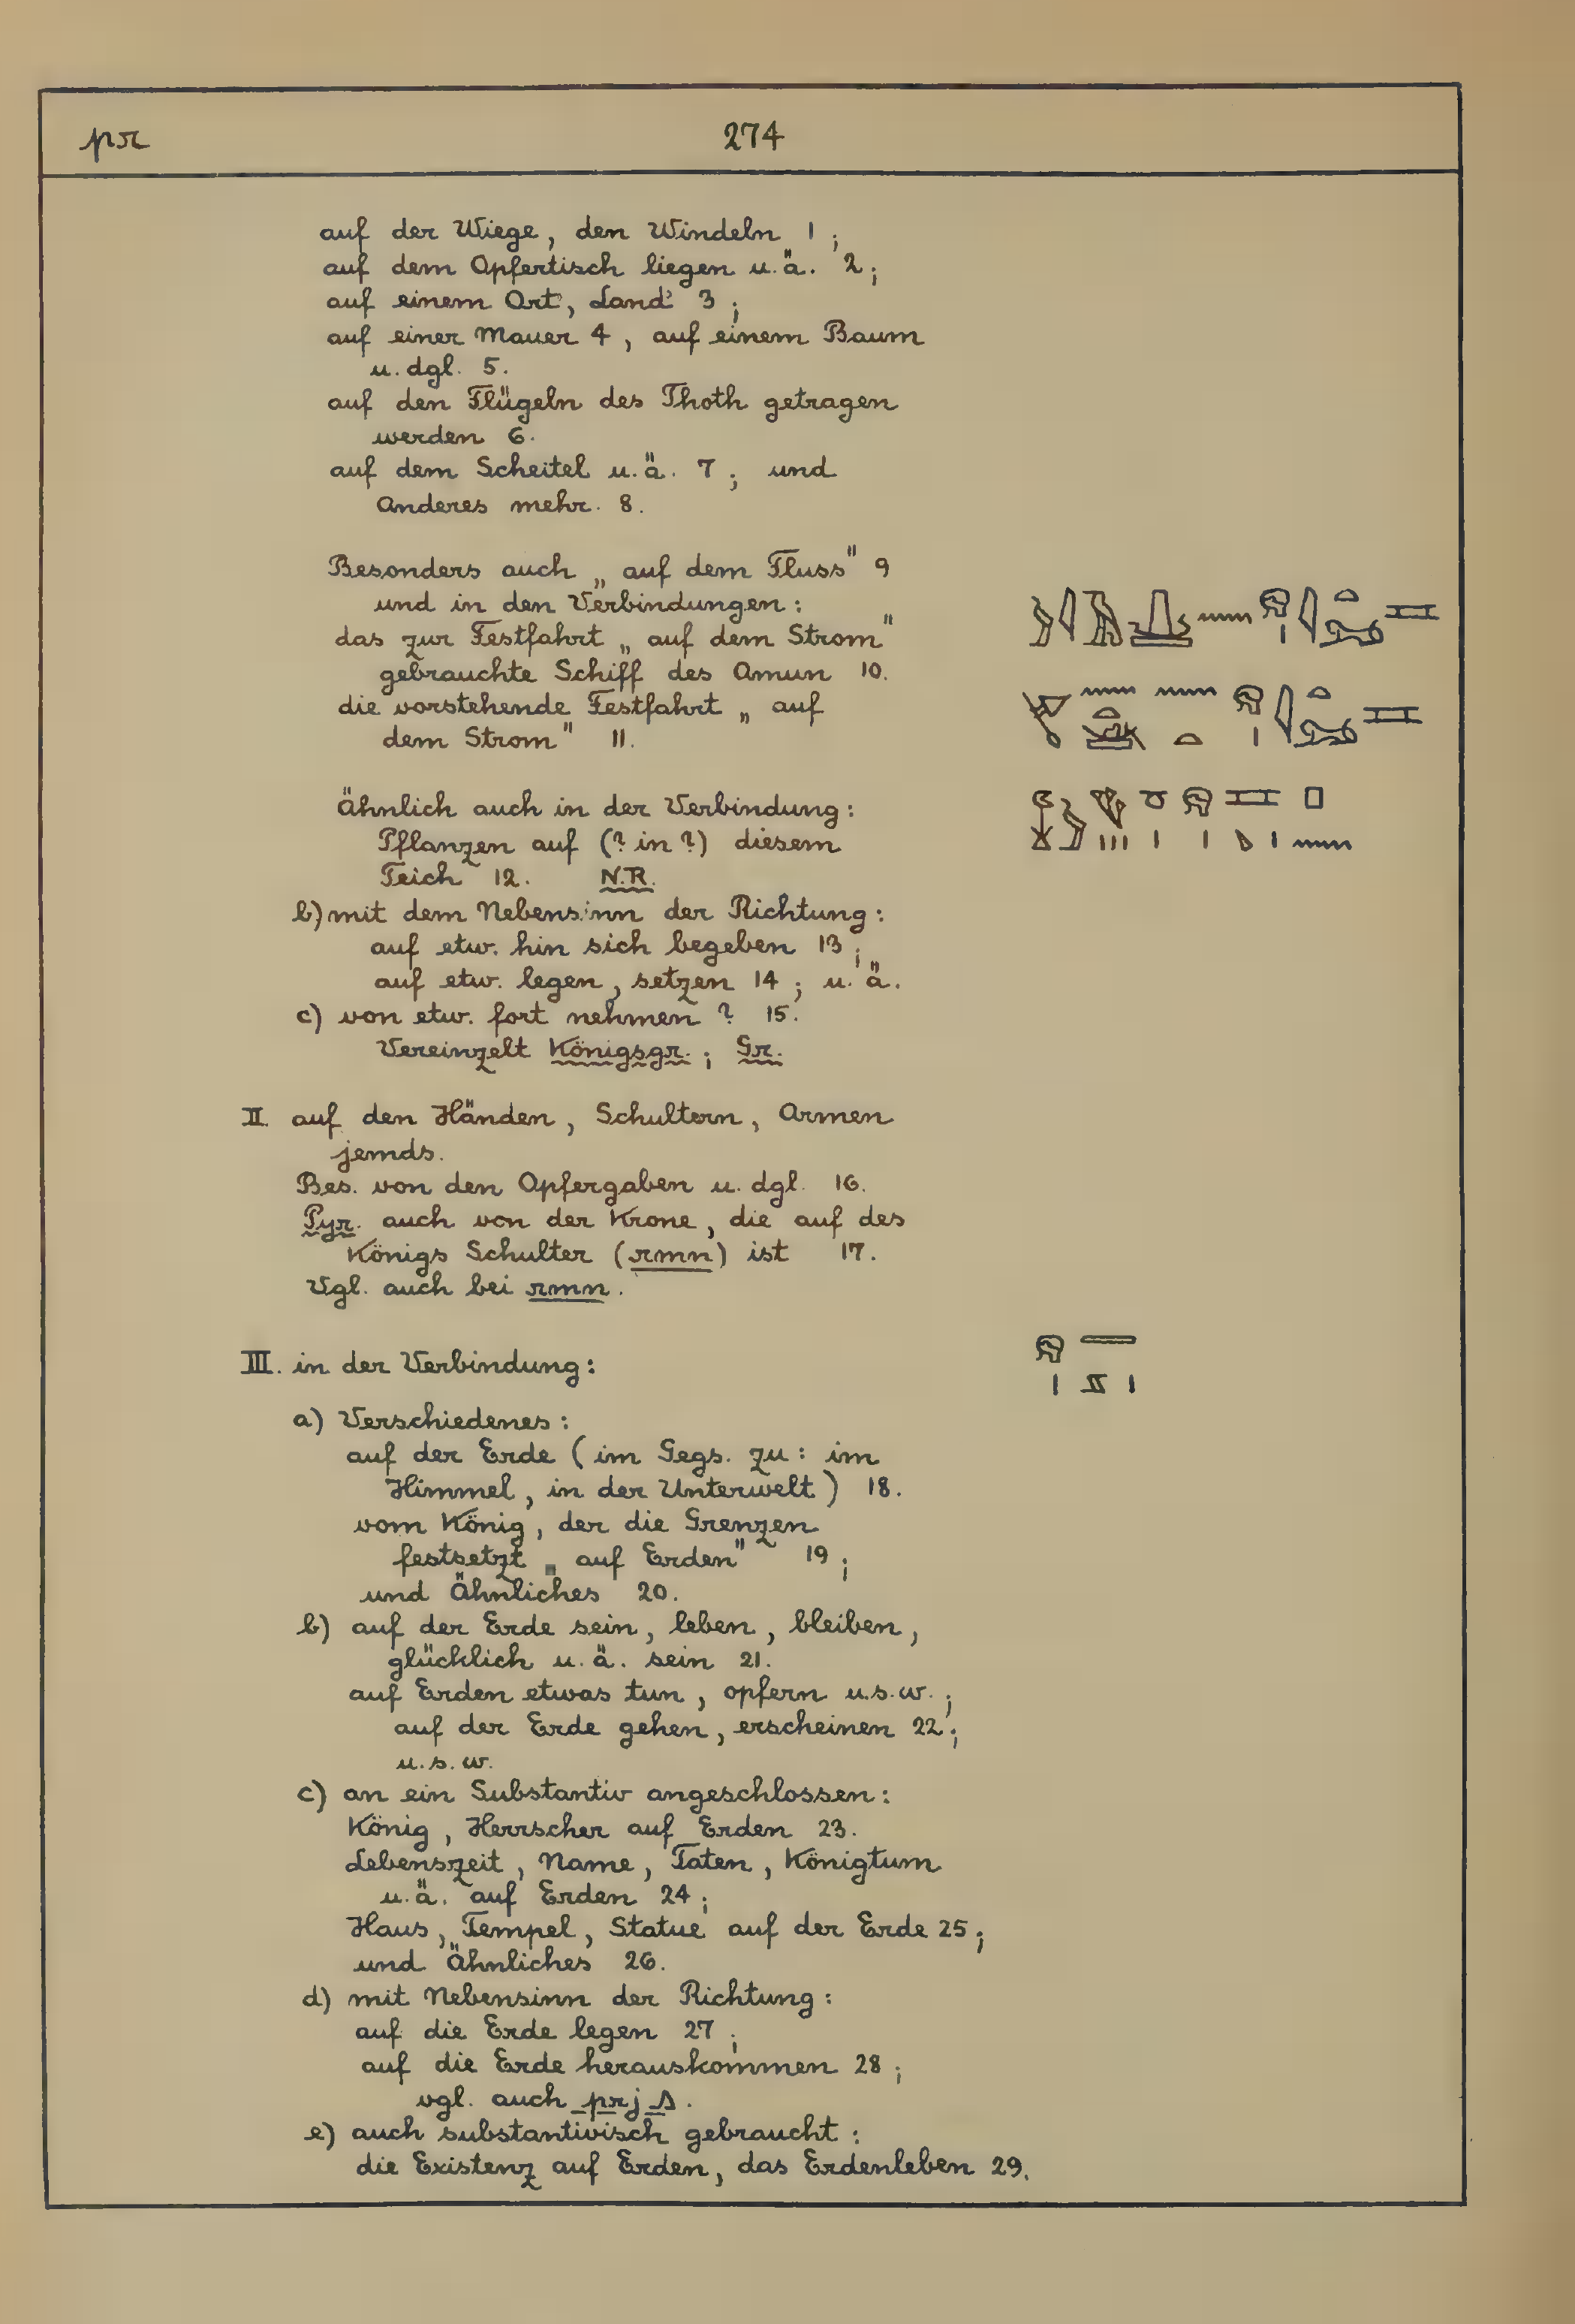 pr 274
auf der Wiege, den Windeln 1;
auf dem Opfertisch liegen u.ä. 2;
auf einem Ort, Land 3;
auf einer Mauer 4, auf einem Baum
u. dgl. 5.
auf den Flügeln des Thoth getragen
werden 6.
auf dem Scheitel u.ä. 7; und
Anderes mehr. 8.
Besonders auch „auf dem Fluss" 9
und in den Verbindungen:
das zur Festfahrt „auf dem Strom"
gebrauchte Schiff des Amun 10.
die vorstehende Festfahrt „auf
dem Strom" 11.
Ähnlich auch in der Verbindung:
Pflanzen auf (? in ?) diesem
Teich 12. N.R.
b) mit dem Nebensinn der Richtung:
auf etw. hin sich begeben 13;
auf etw. legen, setzen 14; u.ä.
c) von etw. fort nehmen ? 15.
Vereinzelt Königsgr.; Gr.
II. auf den Händen, Schultern, Armen
jemds.
Bes. von den Opfergaben u. dgl. 16.
Pyr. auch von der Krone, die auf des
Königs Schulter (rmn) ist 17.
Vgl. auch bei rmn.
III. in der Verbindung:
a) Verschiedenes:
auf der Erde (im Gegs. zu: im
Himmel, in der Unterwelt) 18.
vom König, der die Grenzen
festsetzt „auf Erden" 19;
und Ähnliches 20.
b) auf der Erde sein, leben, bleiben,
glücklich u.ä. sein 21.
auf Erden etwas tun, opfern u.s.w.;
auf der Erde gehen, erscheinen 22;
u.s.w.
c) an ein Substantiv angeschlossen:
König, Herrscher auf Erden 23.
Lebenszeit, Name, Taten, Königtum
u.ä. auf Erden 24;
Haus, Tempel, Statue auf der Erde 25;
und Ähnliches 26.
d) mit Nebensinn der Richtung:
auf die Erde legen 27;
auf die Erde herauskommen 28;
vgl. auch prj A.
e) auch substantivisch gebraucht:
die Existenz auf Erden, das Erdenleben 29.